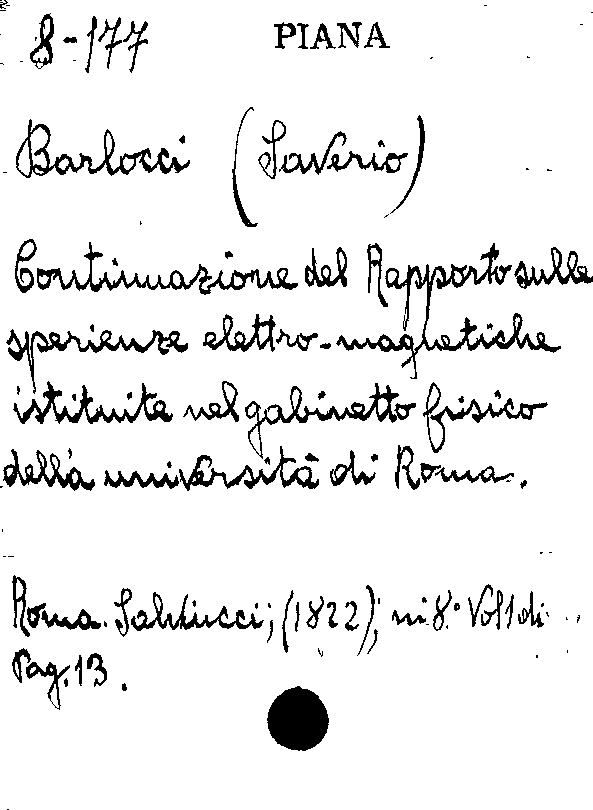 8-177 PIANA
Barlocci (Saverio)
Continuazione del Rapporto sulle
sperienze elettro-magnetiche
istituite nel gabinetto fisico
della università di Roma.
Roma. Salviucci; (1822); in 8.° Vol 1 di
Pag. 13.